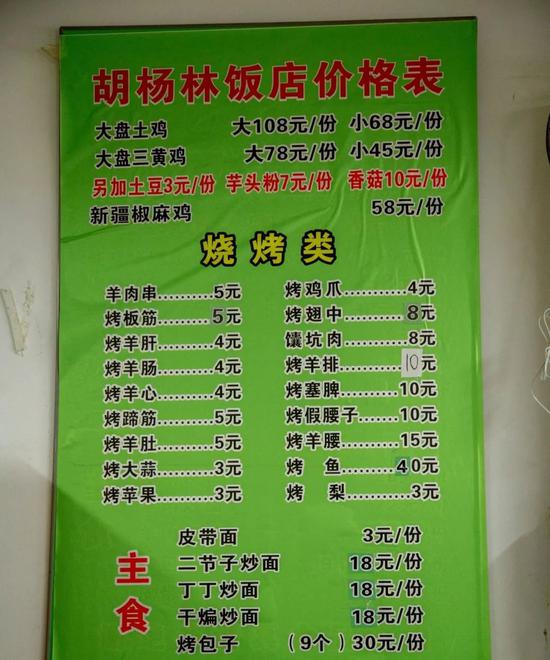 胡杨林饭店价格表
大盘土鸡 大108元/份 小68元/份
大盘三黄鸡 大78元/份 小45元/份
另加土豆3元/份 芋头粉7元/份 香菇10元/份
新疆椒麻鸡 58元/份
烧烤类
羊肉串..........5元 烤鸡爪............4元
烤板筋..........5元 烤翅中............8元
烤羊肝..........4元 馕坑肉............8元
烤羊肠..........4元 烤羊排............10元
烤羊心..........4元 烤塞脾..........10元
烤蹄筋..........5元 烤假腰子.......10元
烤羊肚..........5元 烤羊腰..........15元
烤大蒜..........3元 烤 鱼..........40元
烤苹果..........3元 烤 梨............3元
主食
皮带面 3元/份
二节子炒面 18元/份
丁丁炒面 18元/份
干煸炒面 18元/份
烤包子 (9个)30元/份